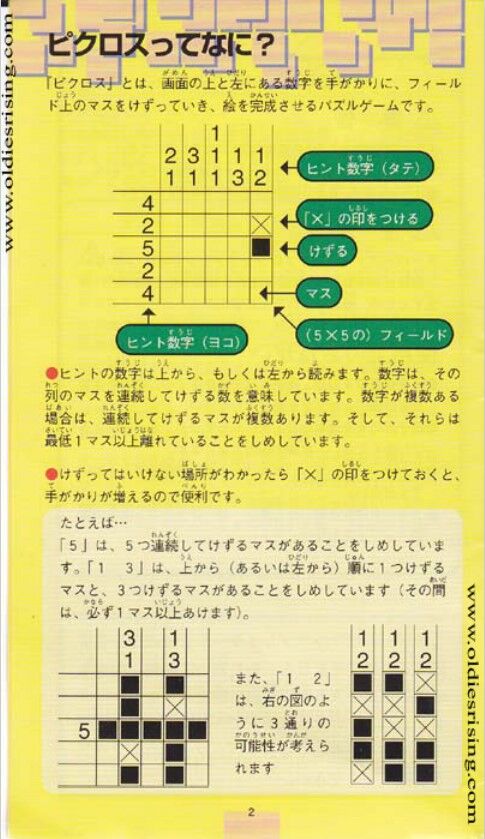 ピクロスってなに？
「ピクロス」とは、画面の上と左にある数字を手がかりに、フィール
ド上のマスをけずっていき、絵を完成させるパズルゲームです。
1
2 3 1 1 1
1 1 1 3 2
4
2
5
2
4
ヒント数字（タテ）
「×」の印をつける
けずる
マス
（5×5の）フィールド
ヒント数字（ヨコ）
●ヒントの数字は上から、もしくは左から読みます。数字は、その
列のマスを連続してけずる数を意味しています。数字が複数ある
場合は、連続してけずるマスが複数あります。そして、それらは
最低1マス以上離れていることをしめしています。
●けずってはいけない場所がわかったら「×」の印をつけておくと、
手がかりが増えるので便利です。
たとえば…
「5」は、5つ連続してけずるマスがあることをしめしていま
す。「1 3」は、上から（あるいは左から）順に1つけずる
マスと、3つけずるマスがあることをしめしています（その間
は、必ず1マス以上あけます）。
3 1
1 3
5
また、「1 2」
は、右の図のよ
うに3通りの
可能性が考えら
れます
1 1 1
2 2 2
2
www.oldiesrising.com
www.oldiesrising.com